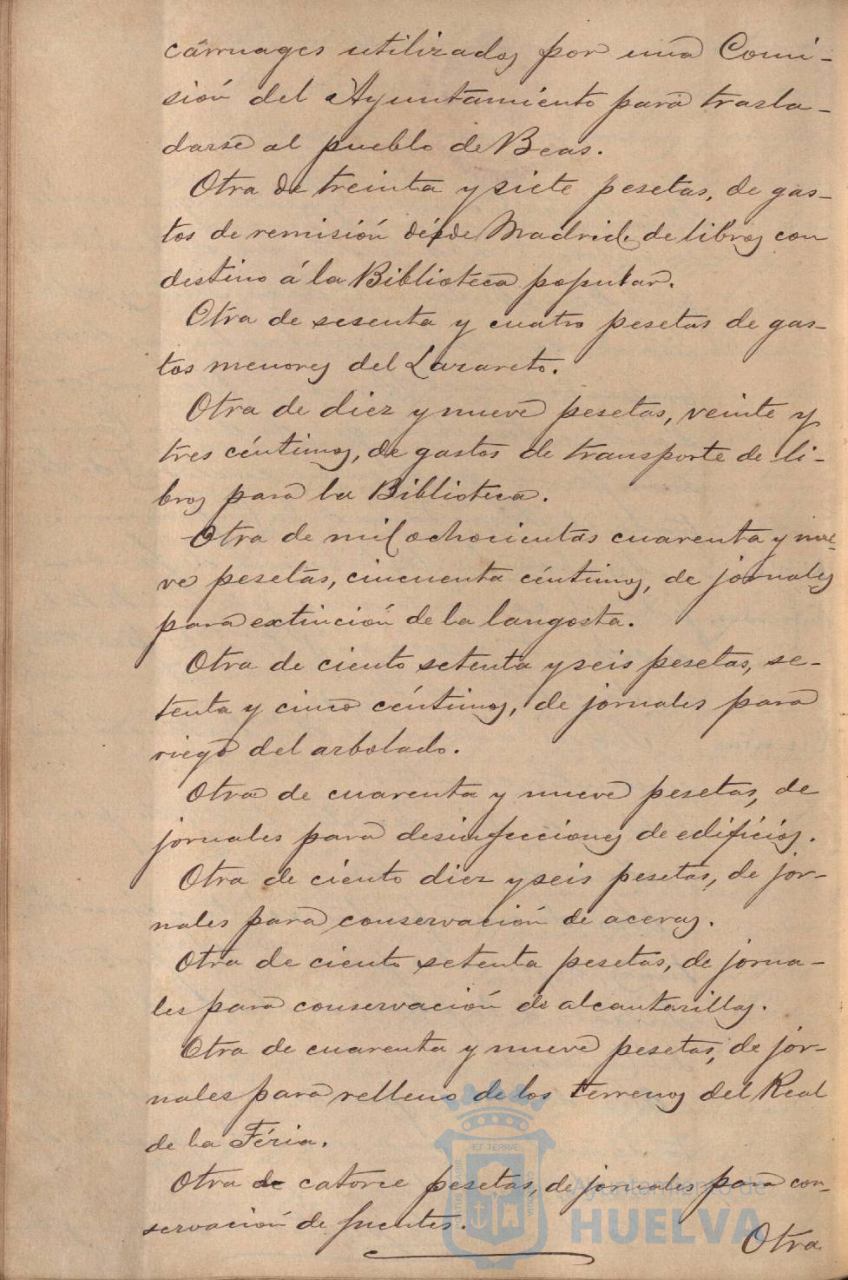 cárruages utilizados por una Comi-
sión del Ayuntamiento para trasla-
darse al pueblo de Beas.
Otra de treinta y siete pesetas, de gas-
tos de remisión désde Madrid, de libros con
destino á la Biblioteca popular.
Otra de sesenta y cuatro pesetas de gas-
tos menores del Lazareto.
Otra de diez y nueve pesetas, veinte y
tres céntimos, de gastos de transporte de li-
bros para la Biblioteca.
Otra de mil ochocientas cuarenta y nue-
ve pesetas, cincuenta céntimos, de jornales
para extinción de la langosta.
Otra de ciento setenta y seis pesetas, se-
tenta y cinco céntimos, de jornales para
riego del arbolado.
Otra de cuarenta y nueve pesetas, de
jornales para desinfecciones de edificios.
Otra de ciento diez y seis pesetas, de jor-
nales para conservación de aceras.
Otra de ciento setenta pesetas, de jorna-
les para conservación de alcantarillas.
Otra de cuarenta y nueve pesetas, de jor-
nales para relleno de los terrenos del Real
de la Féria.
Otra de catorce pesetas, de jornales para con-
servación de fuentes.
Otra
Ayuntamiento de
HUELVA